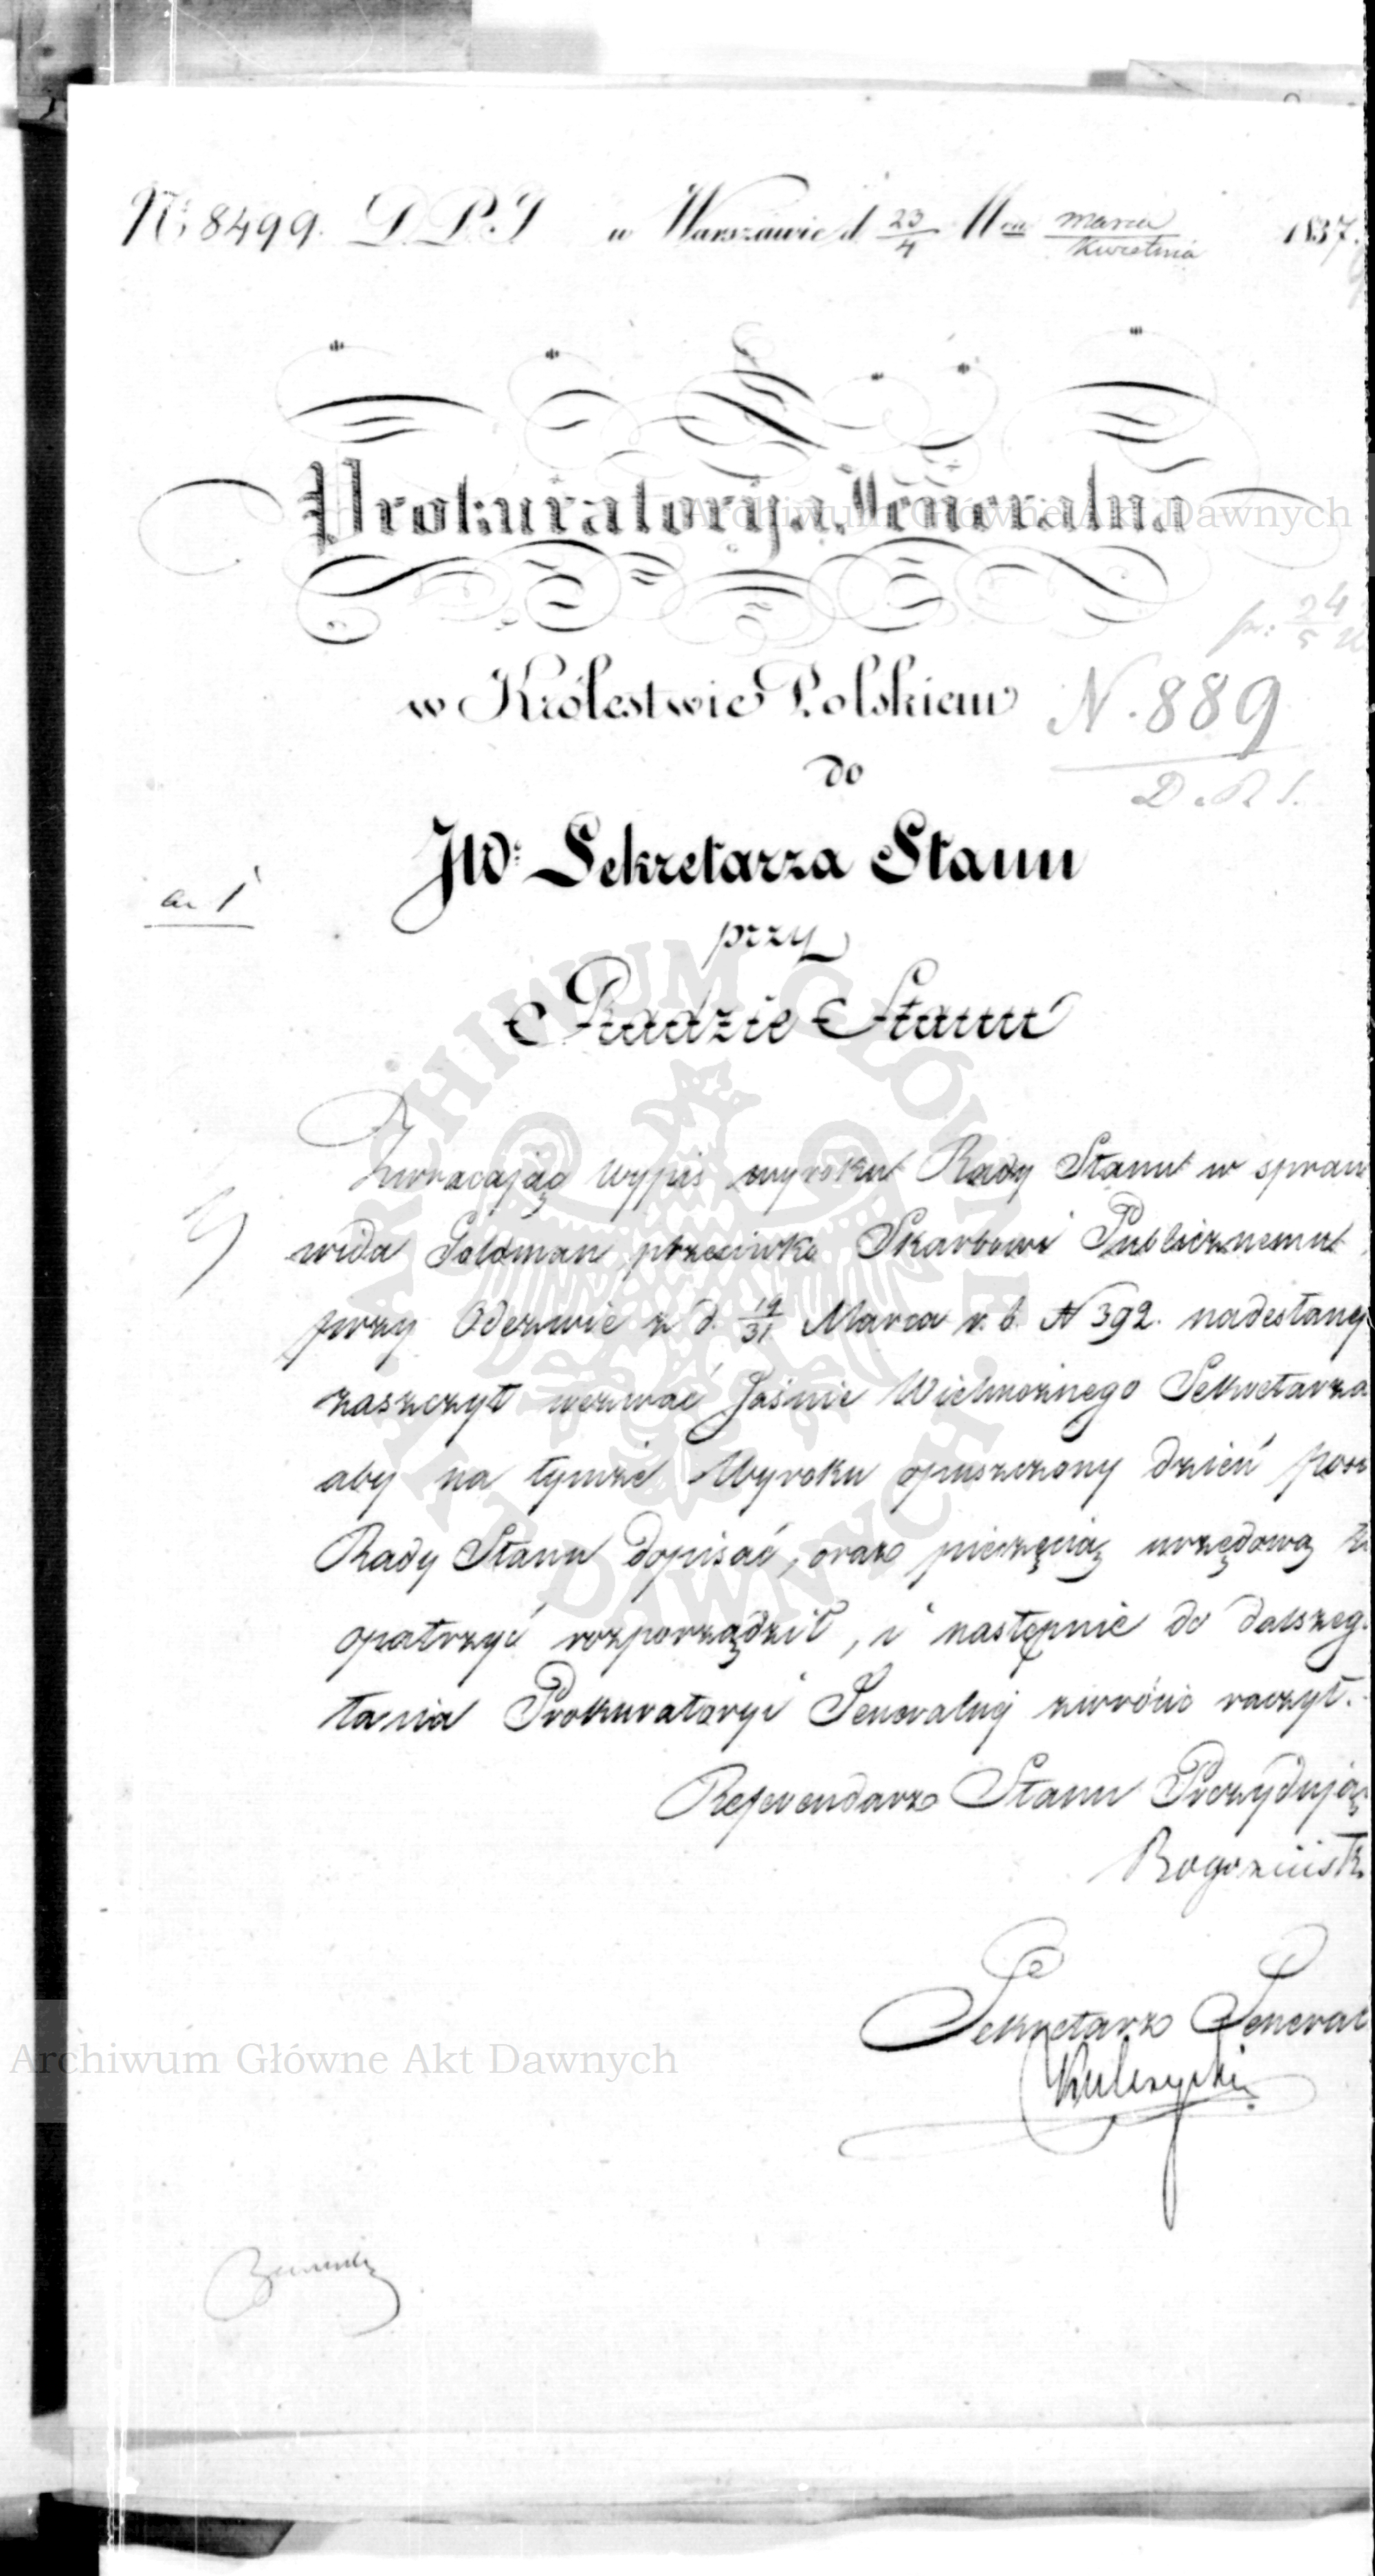 N: 8499. D.P.S w Warszawie d. 23/4 M-ca marca/Kwietnia 1837.
Prokuratorya Jeneralna
Archiwum Główne Akt Dawnych
w Królestwie Polskiem
N. 889
do
D.R.S.
JW: Sekretarza Stanu
przy
Radzie Stanu
ARCHIWUM GŁÓWNE AKT DAWNYCH
Zwracając wypis wyroku Rady Stanu w spraw
wida Goldman przeciwko Skarbowi Publicznemu
przy Odezwie z d. 19/31 Marca r. b. N 392. nadesłany
zaszczyt wezwać Jaśnie Wielmożnego Sekretarza
aby na tymże Wyroku opuszczony dzień posi
Rady Stanu dopisać, oraz pieczęcią urzędową
opatrzyć rozporządził, i następnie do dalszeg
łania Prokuratoryi Jeneralnej zwrócić raczył.
Referendarz Stanu Prezydując
Sekretarz Jeneral
Kulczycki
Archiwum Główne Akt Dawnych